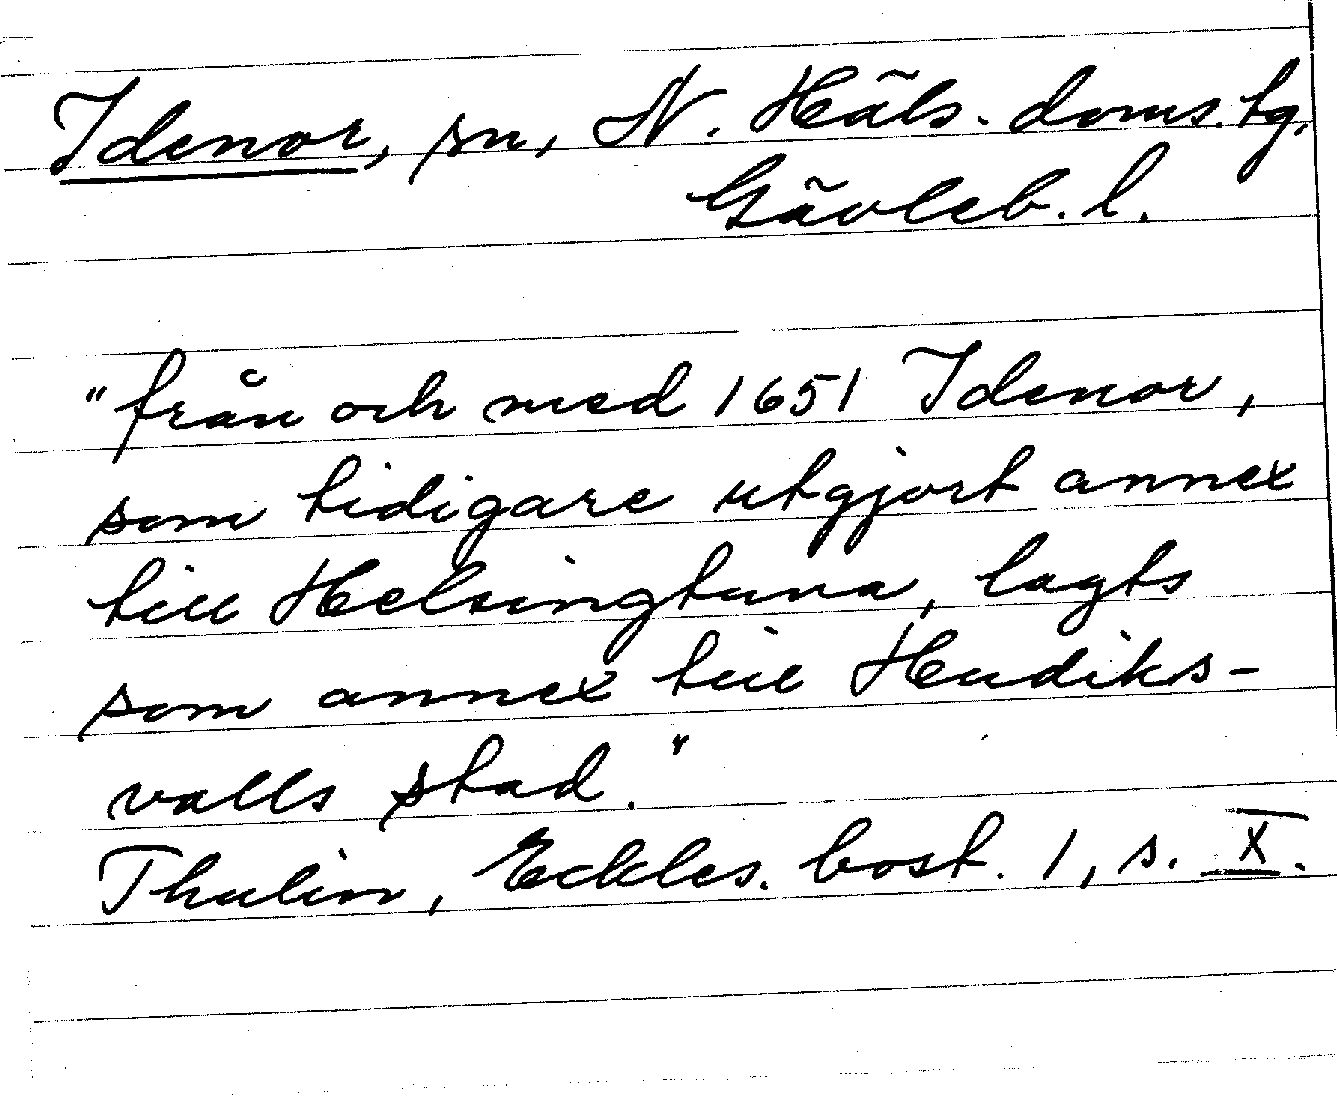 Idenor, sn, N. Häls. doms. tg,
Gävleb. l.
"från och med 1651 Idenor,
som tidigare utgjort annex
till Helsingtuna, lagts
som annex till Hudiks-
valls stad."
Thulin, Eckles. bost. 1, s. X.